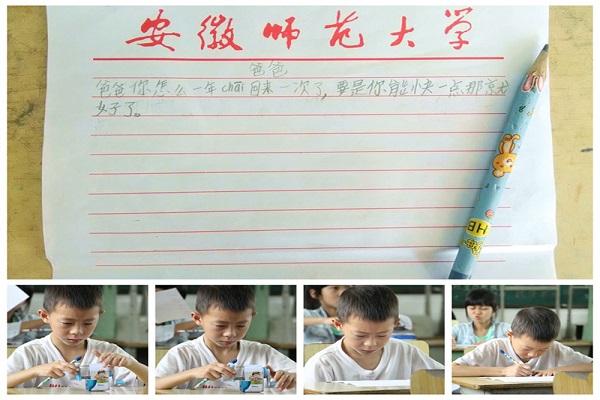 安徽师范大学
爸爸
爸爸你怎么一年chai回来一次了，要是你能快一点那就
好了。
HB